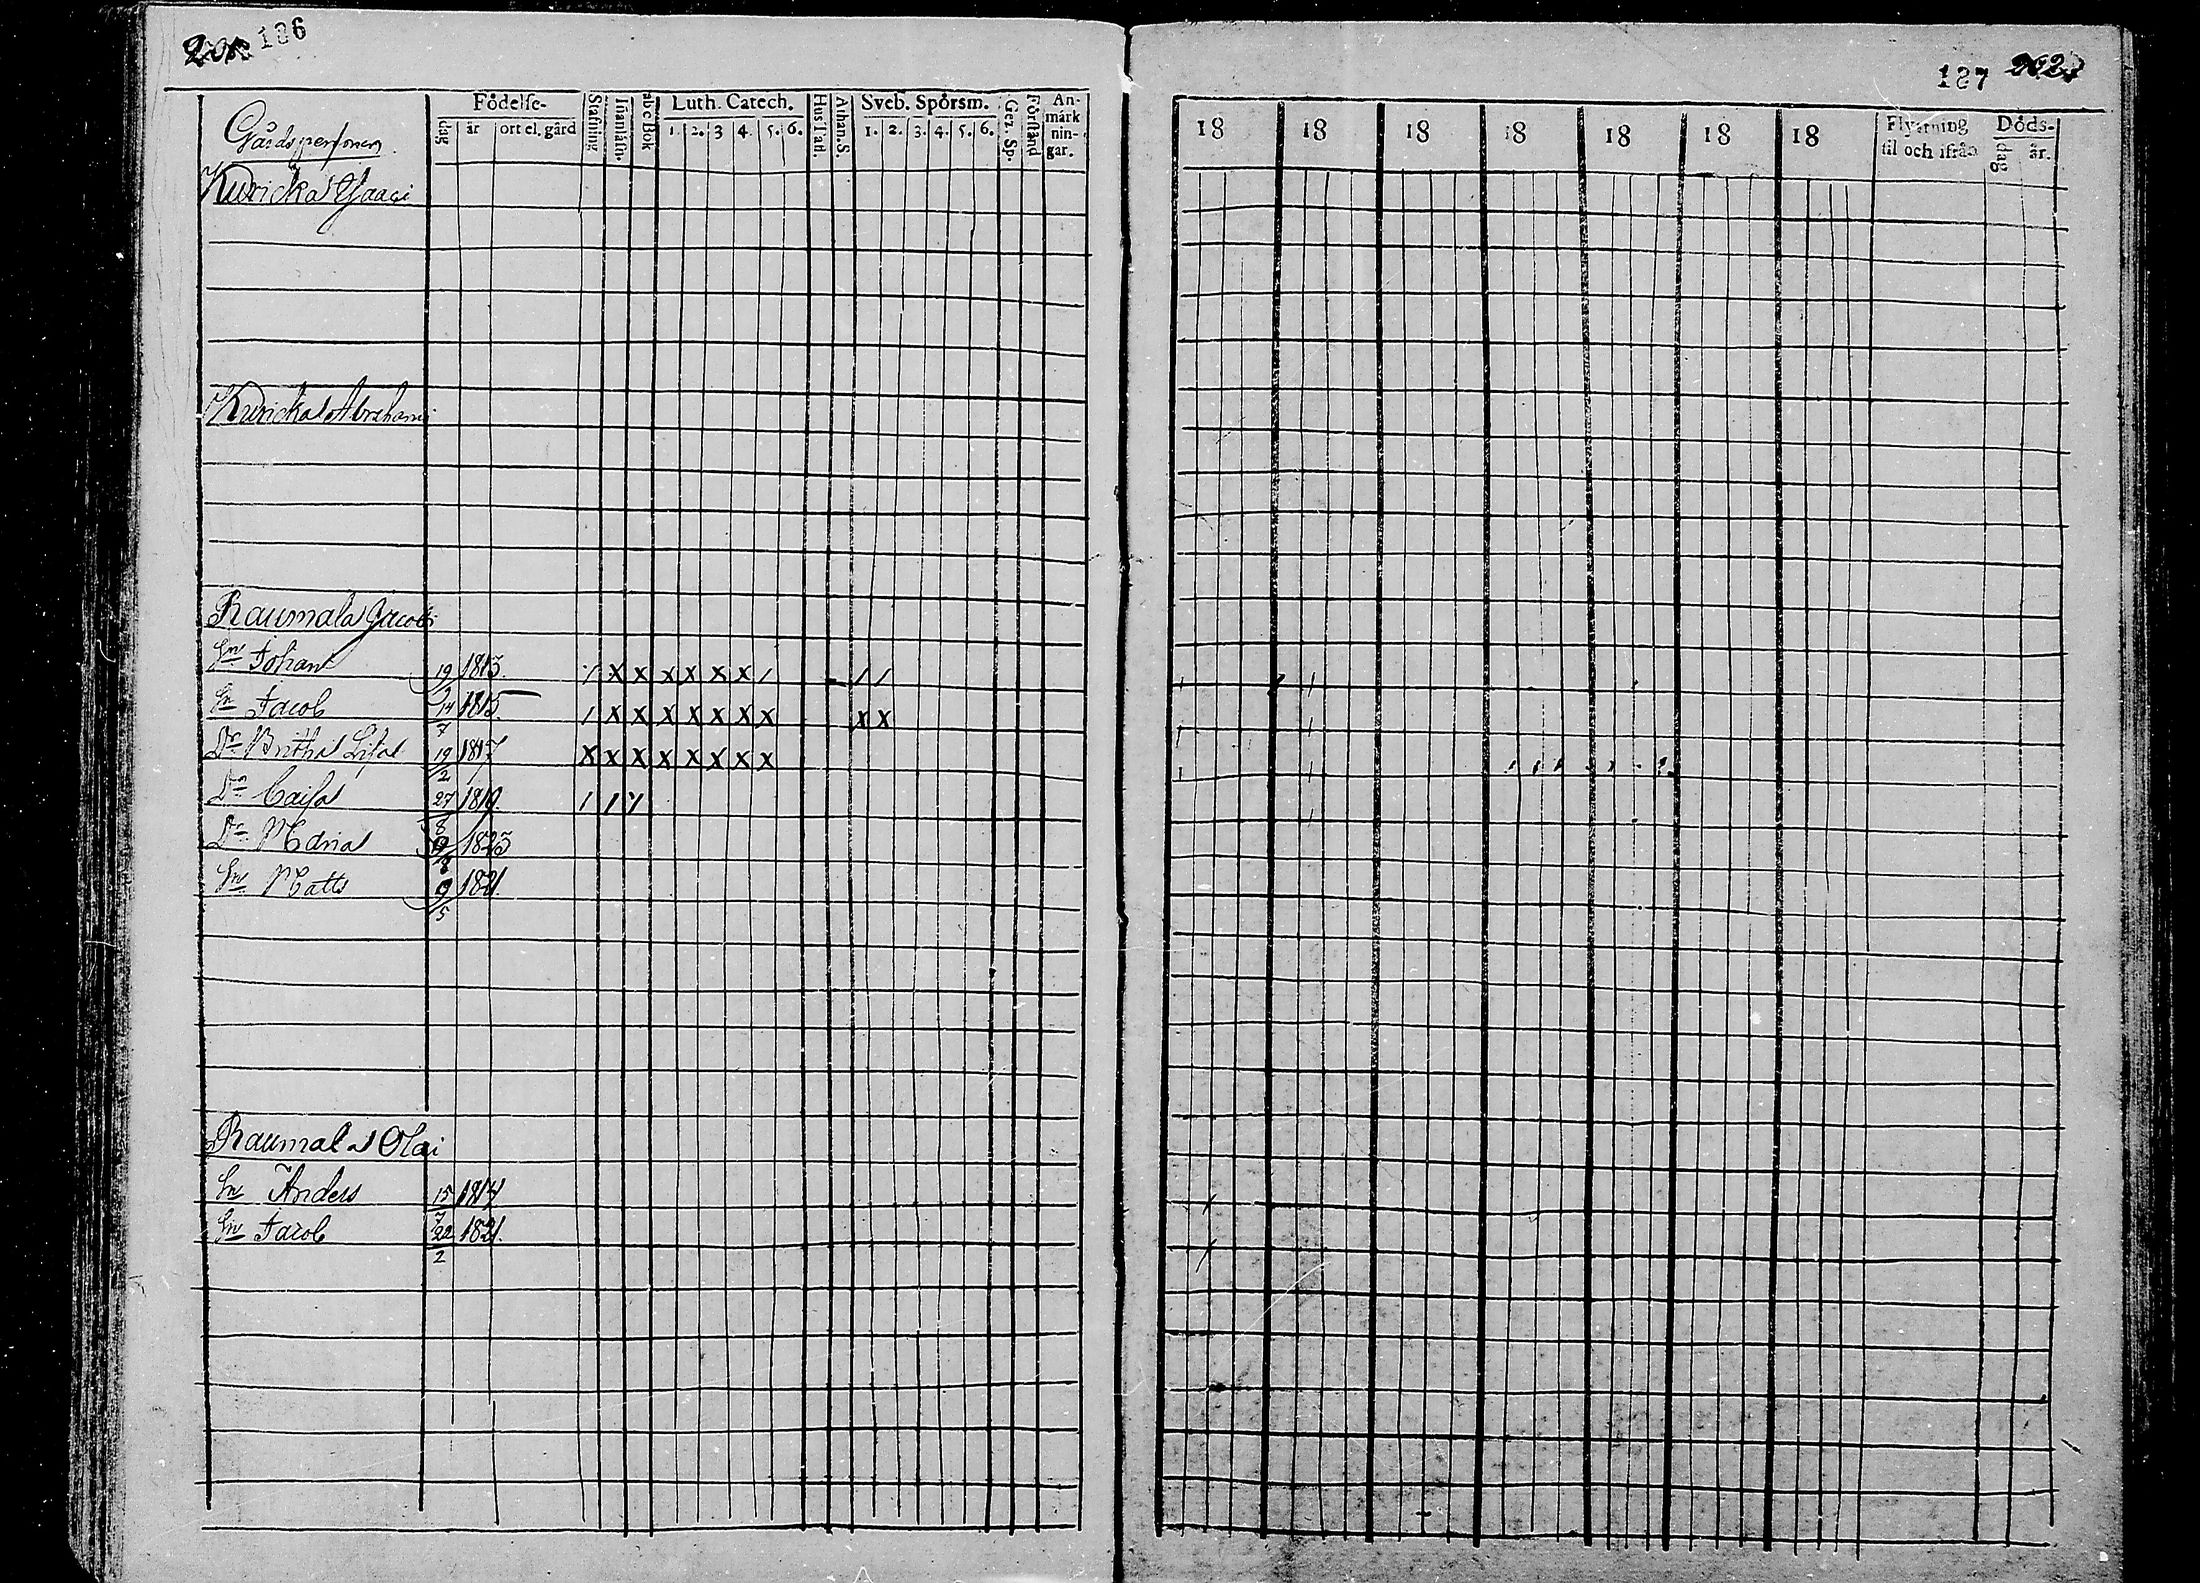 201 186
Födelse- Stafning Innanläsn. abc Bok Luth. Catech. Hus Tafl. Athan. S. Sveb. Spörsm. Gez. Sp. Förstånd An-märk nin-gar.
dag år ort el. gård 1. 2. 3 4. 5. 6. 1. 2. 3. 4. 5. 6.
Gårdspersoner
Kuricka Isaaci
Kuricka Abrahami
Raumala Jacobi
Sn Johan 19 1813. / x x x x x x / / /
Sn Jacob 14/7 1815. / x x x x x x x x x
Dr Britha Lisa 19/2 1817 x x x x x x x x
Dr Caisa 27/8 1819. / / /
Dr Maria 9/8 1823
Sn Matts 9/5 1821.
Raumala Olai
Sn Anders 15/7 1814
Sn Jacob 22/2 1821.
187 202
18 18 18 18 18 18 18 Flyttning til och ifrån Döds-
dag år.